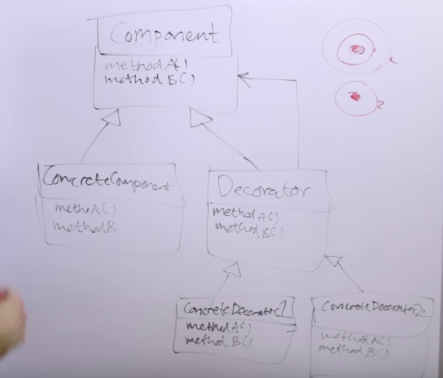 Component
methodA()
methodB()
ConcreteComponent
methoA()
methodB
Decorator
methodA()
methodB()
ConcreteDecorator1
methodA()
methodB()
ConcreteDecorator2
methodA()
methodB()